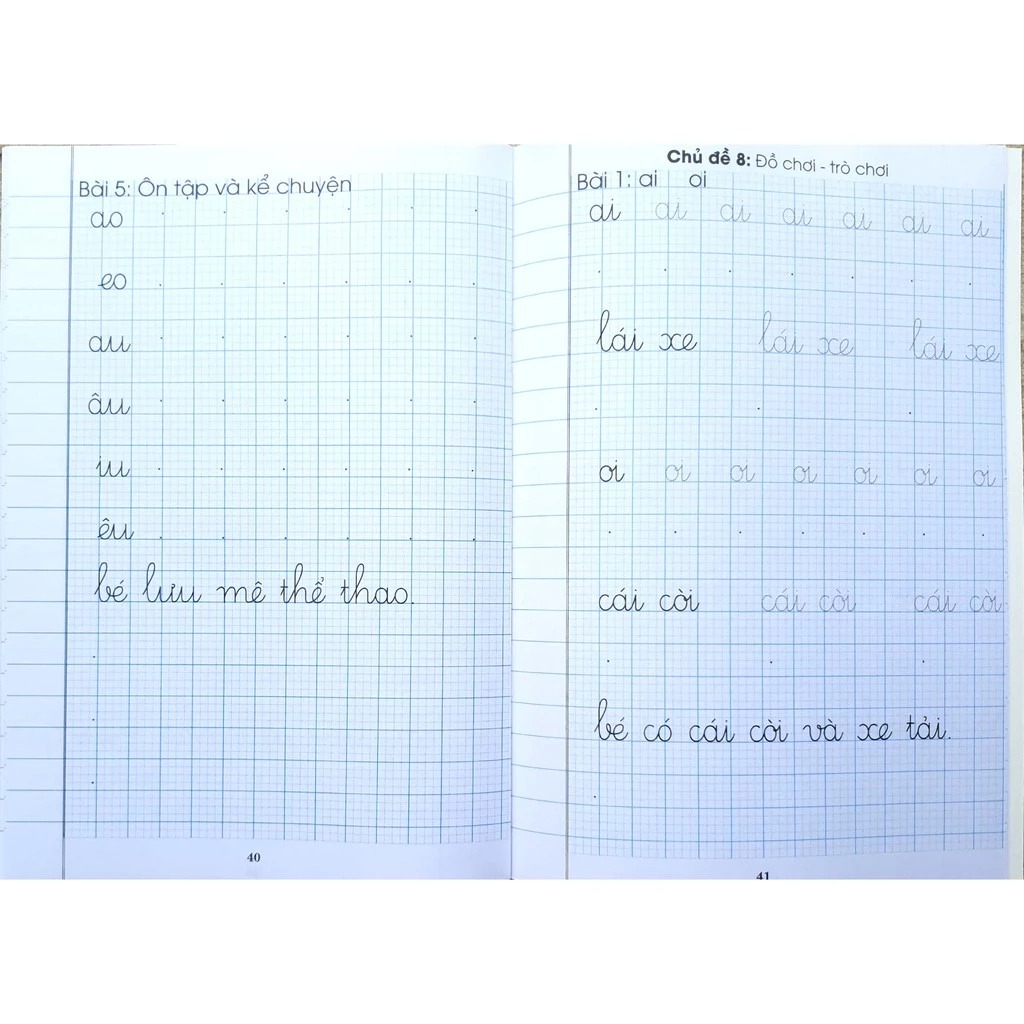 Bài 5: Ôn tập và kể chuyện
ao
eo
au
âu
iu
êu
bé lưu mê thể thao.
40
Chủ đề 8: Đồ chơi - trò chơi
Bài 1: ai oi
ai ai ai ai ai ai ai
lái xe lái xe lái xe
oi oi oi oi oi oi oi
cái còi cái còi cái còi
bé có cái còi và xe tải.
41